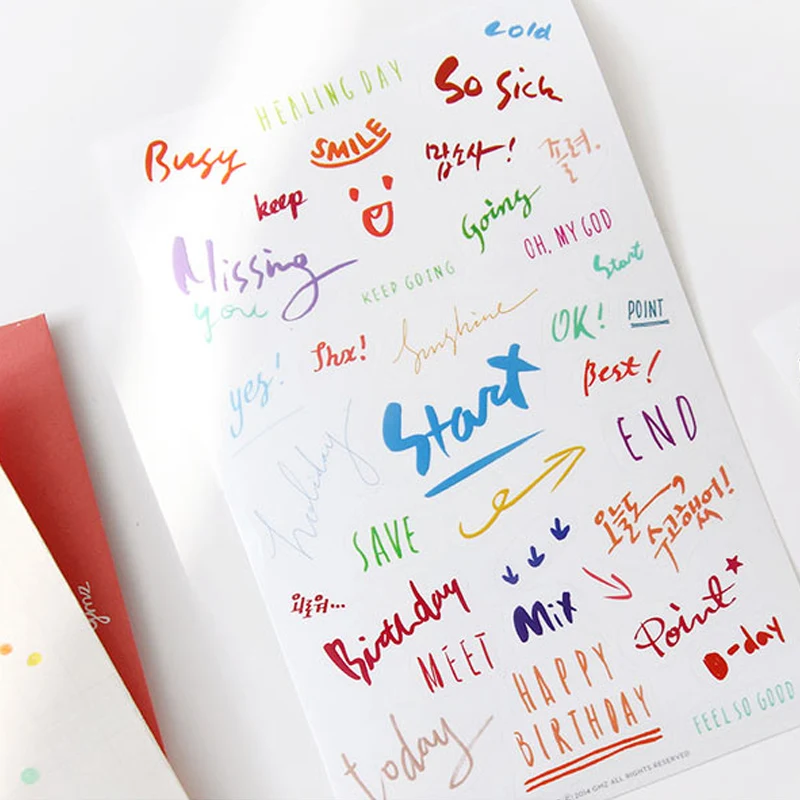 cold
HEALING DAY
So Sick
Busy
SMILE
맙소사-!
졸려.
keep
Going
OH, MY GOD
Missing
you
KEEP GOING
Start
yes!
Thx!
Sunshine
OK!
POINT
Start
Best!
holiday
END
SAVE
오늘도,
수고했어!
외로워...
Birthday
Mix
Point
MEET
HAPPY
BIRTHDAY
D-day
today
FEEL SO GOOD
© 2014 GMZ ALL RIGHTS RESERVED
gmz